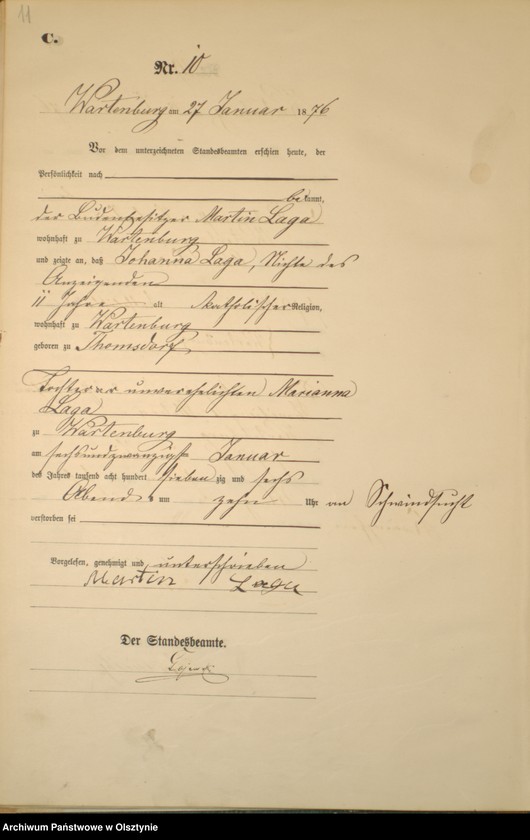 11
C.
Nr. 10
Wartenburg am 27 Januar 1876
Vor dem unterzeichneten Standesbeamten erschien heute, der
Persönlichkeit nach
bekannt,
der Budenbesitzer Martin Laga
wohnhaft zu Wartenburg
und zeigte an, daß Johanna Laga, Nichte des
Anzeigenden
11 Jahre alt katholischer Religion,
wohnhaft zu Wartenburg
geboren zu Themsdorf
Tochter der unverehelichten Marianna
Laga
zu Wartenburg
am sechsundzwanzigsten Januar
des Jahres tausend acht hundert siebenzig und sechs
Abends um zehn Uhr an Schwindsucht
verstorben sei
Vorgelesen, genehmigt und unterschrieben
Martin Laga
Der Standesbeamte.
Archiwum Państwowe w Olsztynie